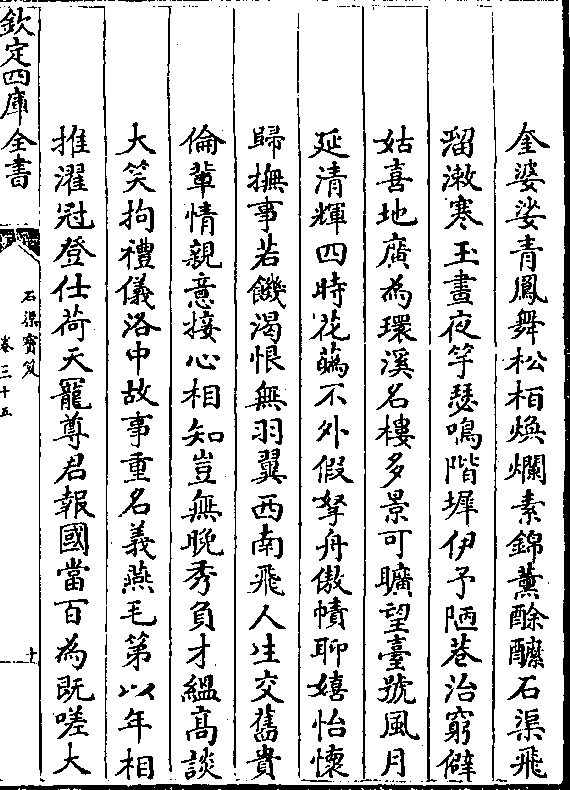 奎婆娑青鳳舞松栢煥爛素錦薫酴醿石渠飛
溜漱寒玉晝夜竽瑟鳴階墀伊予陋巷治窮僻
姑喜地廣為環溪名樓多景可曠望臺號風月
延清輝四時花蘤不外假拏舟傲幘聊嬉怡懷
歸撫事若饑渴恨無羽翼西南飛人生交舊貴
倫輩情親意接心相知豈無晩秀負才緼髙談
大笑拘禮儀洛中故事重名義燕毛第以年相
推濯冠登仕荷天寵尊君報國當百為既嗟大
欽定四庫全書
石渠寳笈
卷三十五
十